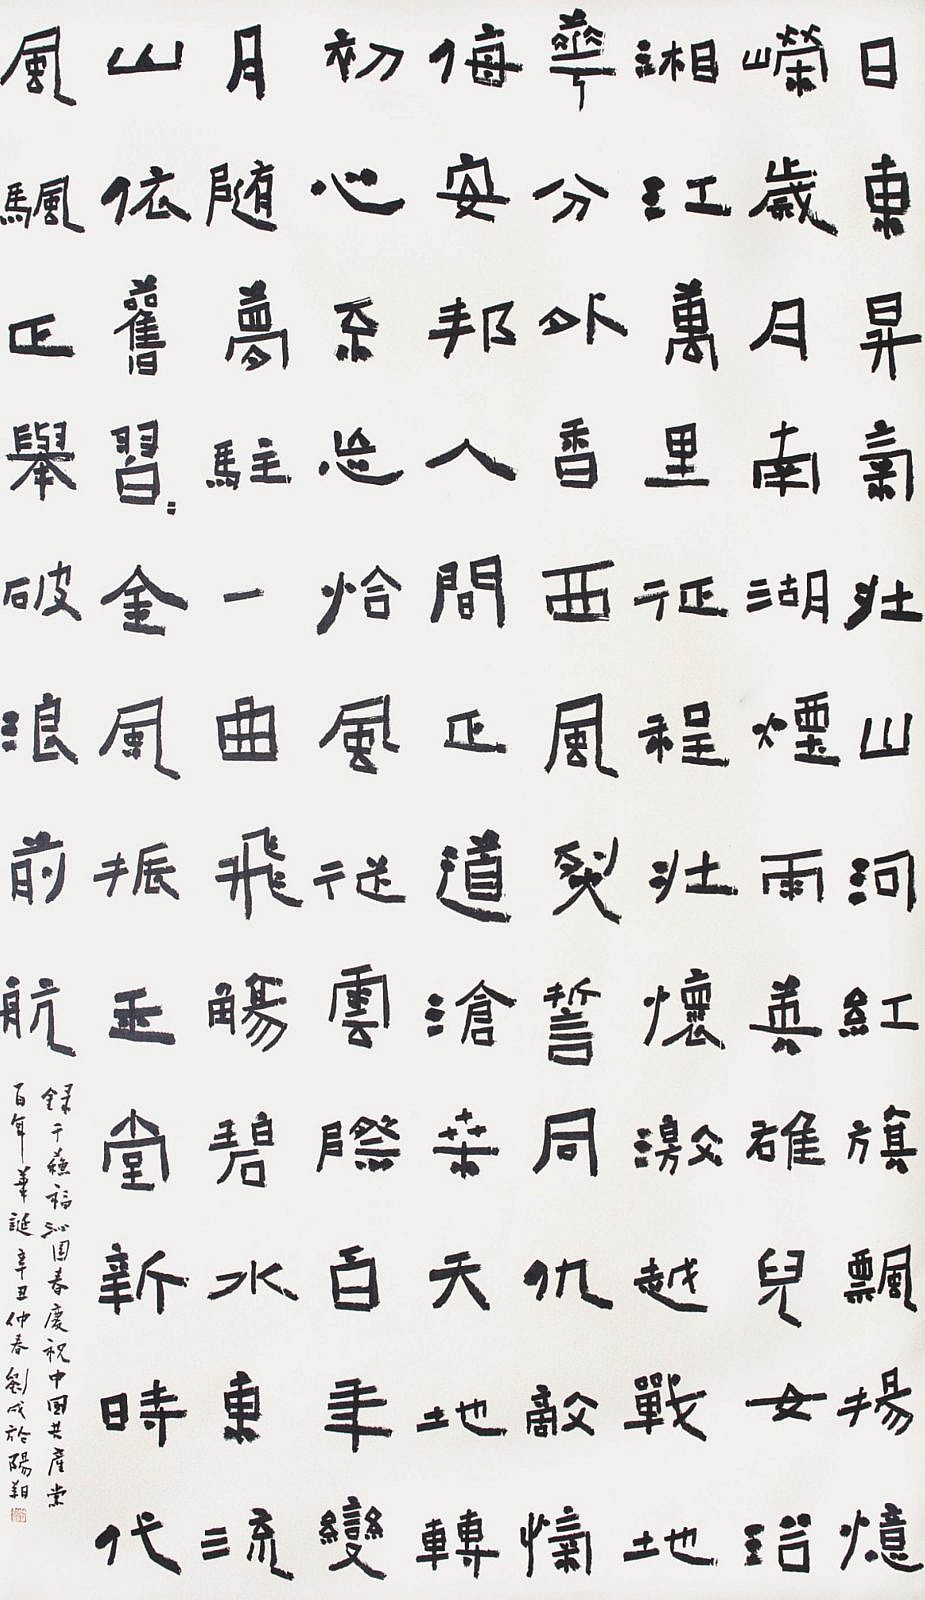 日東昇氣壯山河紅旗飄揚憶
嶸歲月南湖煙雨英雄兒女
湘江萬里征程壯懷激越戰地
華分外香西風烈誓同仇敵愾
侮安邦人間正道滄桑天地轉
初心系恰風從雲際百年變
月随夢駐一曲飛觴碧水東流
山依舊習〻金風振玉堂新時代
風颿正舉破浪前航
錄于蘇福沁园春慶祝中國共產党
百年華誕辛丑仲春劉成於陽